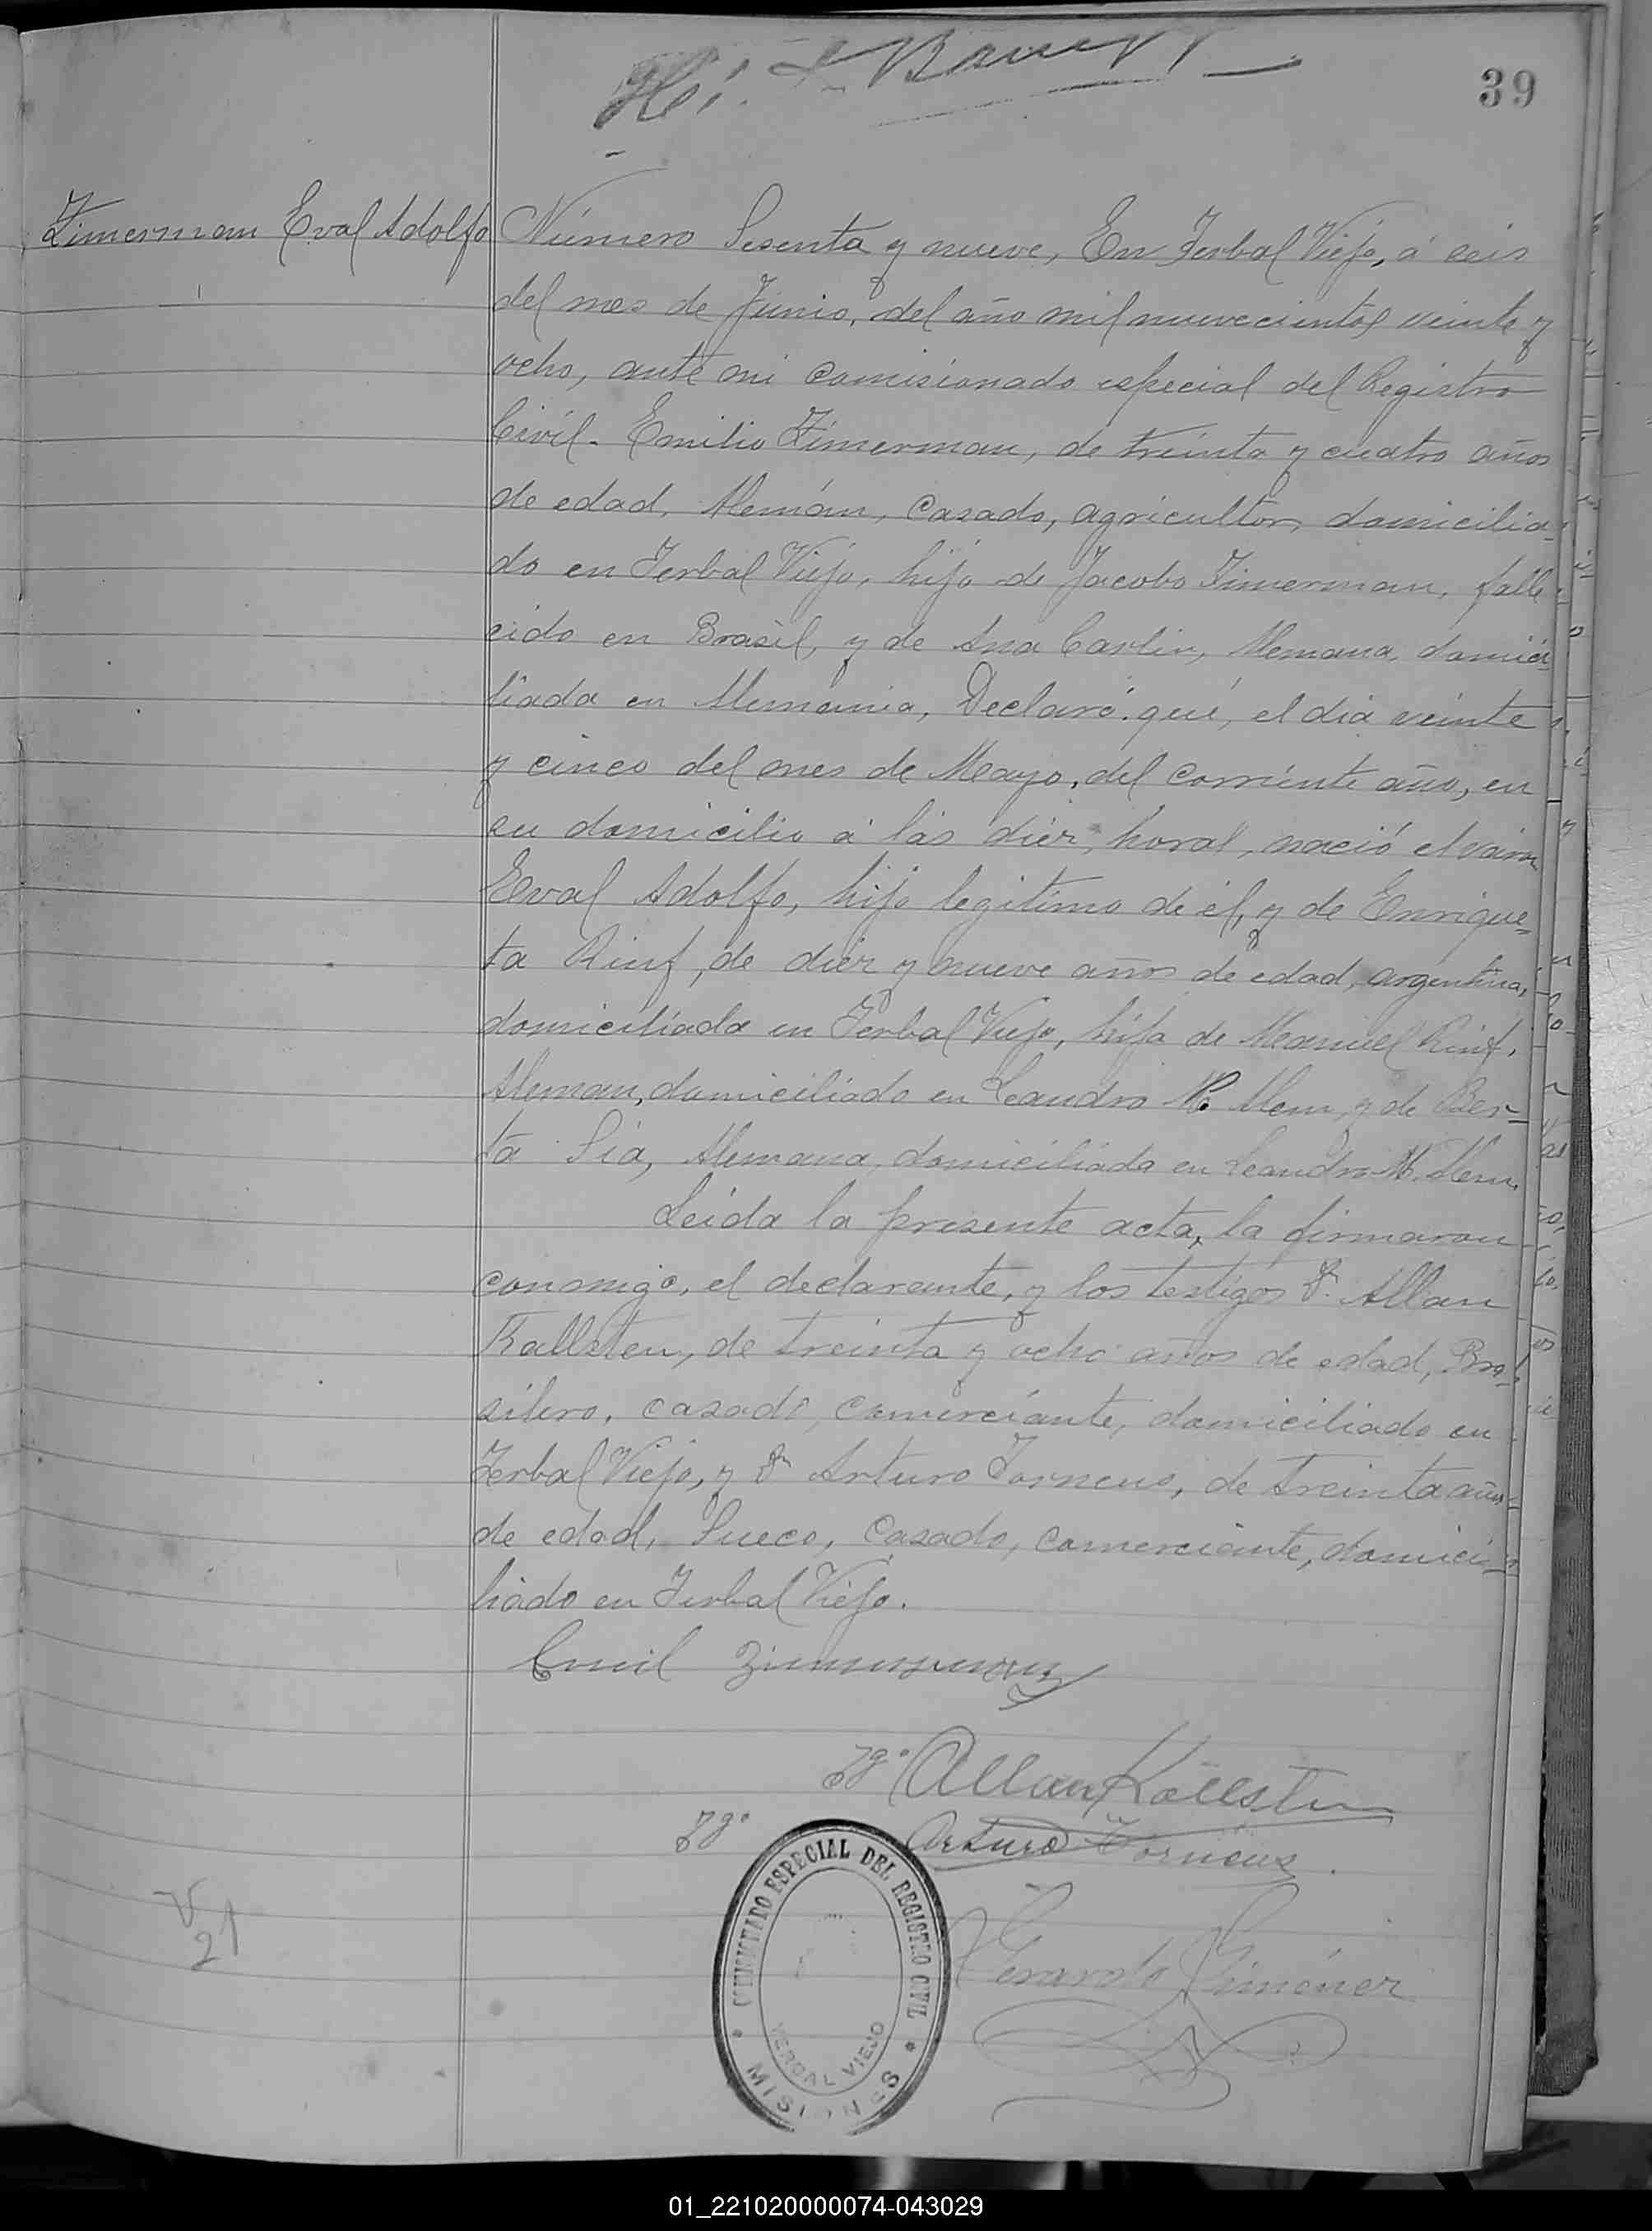 39
Zimerman Eval Adolfo
Número Sesenta y nueve, En Yerbal Viejo, á seis
del mes de Junio, del año mil nuevecientos veinte y
ocho, ante mi comisionado especial del Registro
Civil. Emilio Zimerman, de treinta y cuatro años
de edad, Alemán, casado, agricultor, domicilia-
do en Yerbal Viejo, hijo de Jacobo Zimerman, falle-
cido en Brasil, y de Ana Carlin, Alemana, domici-
liada en Alemania, Declaró: qué, el dia veinte
y cinco del mes de Mayo, del corriente año, en
su domicilio á las diez, horas, nació el varon
Eval Adolfo, hijo legitimo de él, y de Enrique-
ta Rinf, de diez y nueve años de edad, argentina,
domiciliada en Yerbal Viejo, hija de Manuel Rinf,
Aleman, domiciliado en Leandro N. Alem, y de Ber-
ta Sia, Alemana, domiciliada en Leandro N. Alem.
Leida la presente acta, la firmaron
conmigo, el declarante, y los testigos Dn. Allan
Kallsten, de treinta y ocho años de edad, Bra-
silero, casado, comerciante, domiciliado en
Yerbal Viejo, y Dn Arturo Torneus, de treinta años
de edad, Sueco, casado, comerciante, domici-
liado en Yerbal Viejo.
Emil Zimmermann
Tgo. Allan Källsten
Tgo. Arturo Törneus
Gerardo Giménez
COMISIONADO ESPECIAL DEL REGISTRO CIVIL
YERBAL VIEJO
* MISIONES *
V
21
01_221020000074-043029